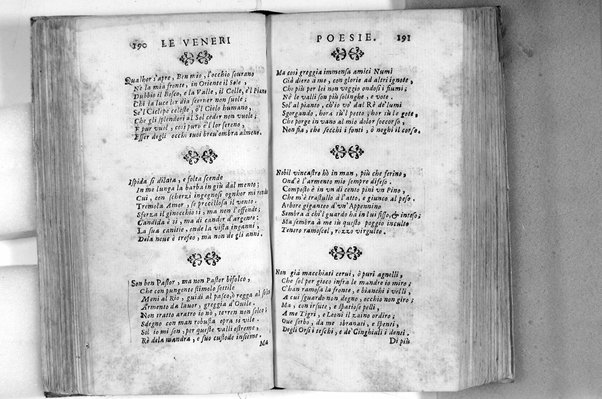 190 LE VENERI
Qualhor s'apre, Ben mio, l'occhio sourano
Ne la mia fronte, in Oriente il Sole,
Dubbio il Bosco, e la Valle, il Colle, e'l Piano
Chi la luce lor dia scerner non suole;
Se'l Ciclope celeste, o'l Cielo humano,
Che gli splendori al Sol ceder non vuole;
E pur vuol, così puro è'l lor sereno,
Esser degli occhi tuoi breu'ombra almeno.
Ispida si dilata, e folta scende
In me lunga la barba in giù dal mento;
Cui, con scherzi ingegnosi ognhor mi rende
Tremola Amor, sì preciosa il vento.
Sferza il ginocchio sì, ma non l'offende;
Candida è sì, ma di cander d'argento;
La sua canitie, onde la vista inganni,
De la neue è trofeo, ma non de gli anni.
Son ben Pastor, ma non Pastor bifolco,
Che con pungente stimolo sottile
Meni al Rio, guidi al pasco, o regga al solco
Armento da lauor, greggia d'Ouile.
Non tratto aratro io nò, terren non solco;
Sdegno con man robusta opra sì vile.
Sol io mi son, per queste valli estreme,
Rè de la mandra, e suo custode insieme.
Ma
POESIE. 191
Ma così greggia immensa amici Numi
Già diero a me, con gloria ad altri ignote,
Che più per lei non veggio ondosi i fiumi;
Nè le valli son più selinghe, e vote.
Sol'al pianto, ch'io vo' dal Rè de'lumi
Sgorgando, hora su'l petto, hor su le gote,
Che porge in vano al mio dolor soccorso,
Non sia, che secchi i fonti, o neghi il corso.
Nobil vincastro hò in man, più che serino,
Ond'è l'armento mio sempre difeso.
Composto è in vn dì cento pini vn Pino,
Che m'è trastullo d'atto, e giunco al peso.
Arbore gigantea d'vn'Appennino
Sembra à chi'l guardo ha in lui fisso, & inteso;
Ma sembra à me sù questo poggio inculto
Tenero ramoscel, rozzo virgulto.
Non già macchiati cerui, ò puri agnelli,
Che sol per gioco infra le mandre io miro;
C'han ramosa la fronte, e bianchi i velli,
A cui sguardo non degno, occhio non giro;
Ma, con irsute, e spatiose pelli,
A me Tigri, e Leoni il zaino ordiro;
Oue serbo, da me sbranati, e spenti,
Degli Orsi i teschi, e de' Cinghiali i denti.
Di più